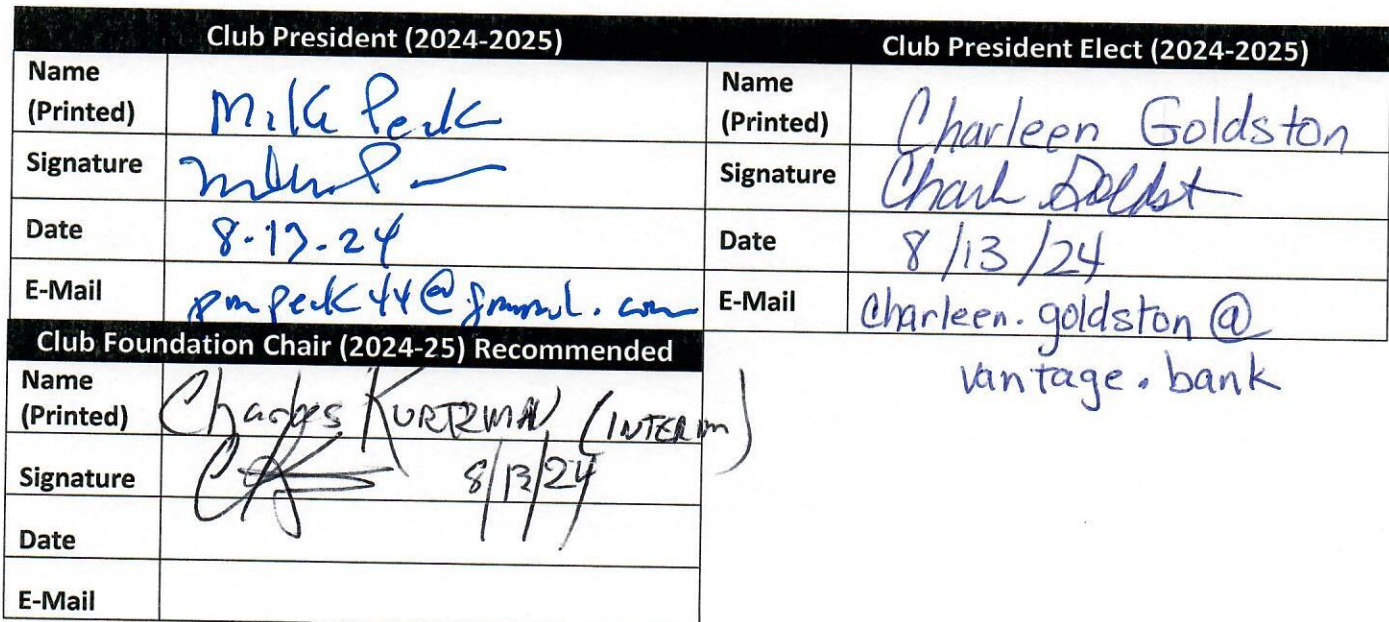 Club President (2024-2025)
Name (Printed) Mike Peck
Signature
Date 8-13-24
E-Mail pmpeck44@gmail.com
Club President Elect (2024-2025)
Name (Printed) Charleen Goldston
Signature
Date 8/13/24
E-Mail charleen.goldston@
vantage.bank
Club Foundation Chair (2024-25) Recommended
Name (Printed) Charles KURTZMAN (INTERIM)
Signature 8/13/24
Date
E-Mail